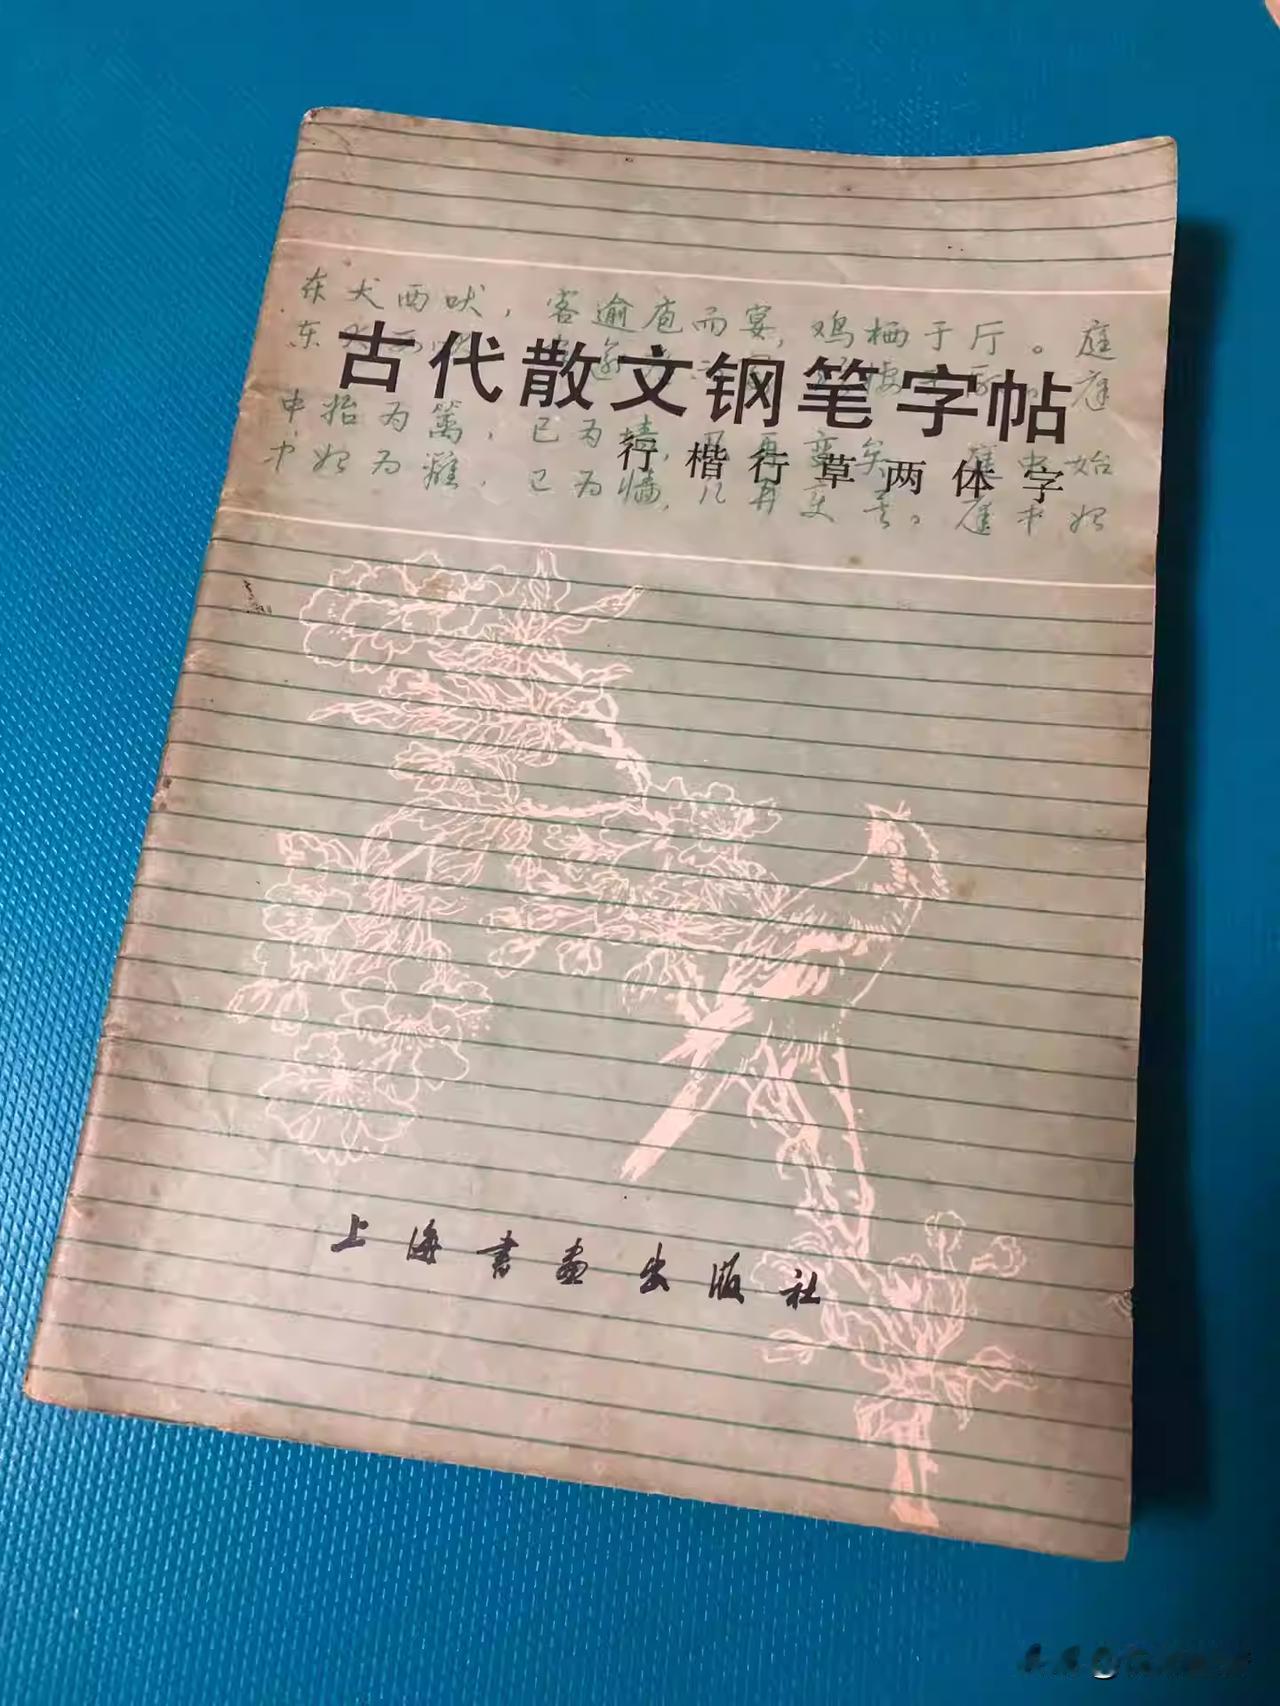 东犬西吠，客逾庖而宴，鸡栖于厅。庭
东犬西 逾 庭
古代散文钢笔字帖
中始为篱，已为墙，凡再变矣。庭中始
行楷行草两体字
中始为篱，已为墙，凡再变矣。庭中始
上海书画出版社